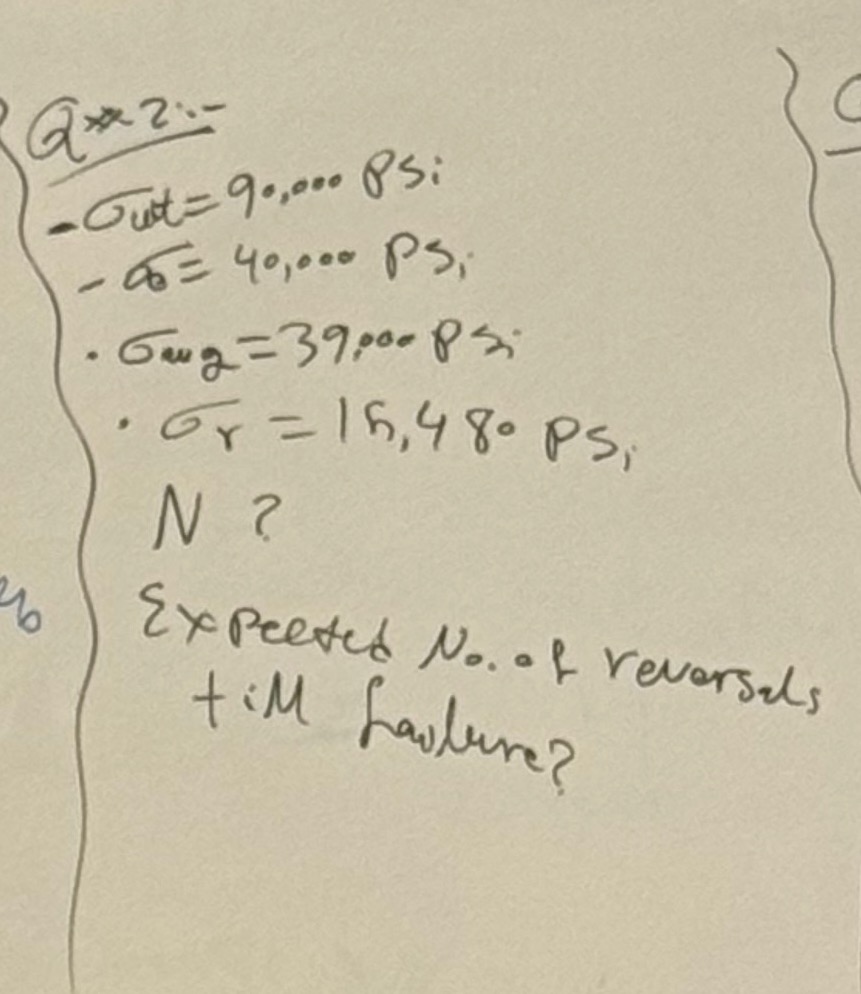 Q 2:-
- σult = 90,000 psi
- σo = 40,000 psi
• σavg = 39,000 psi
• σr = 15,480 psi
N ?
Expected No. of reversals
till failure?